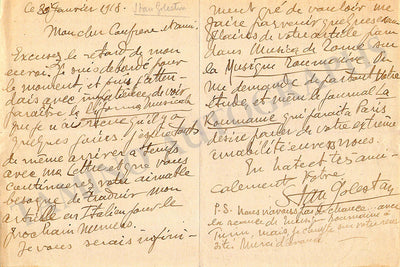 ce 30 Janvier 1918.
Mon cher Confrère et ami.
Excusez le retard de mon
envoi. Je suis débordé pour
le moment, et puis j'atten-
dais avec impatience de voir
paraître la Musicale
que je n'ai reçue qu'il y a
quelques jours. J'espère
de même arriver à temps
avec ma lettre et que vous
continuerez votre aimable
de traduire mon
article en Italien pour le
prochain Numéro.
Je vous serais infini-
ment gré de vouloir me
faire parvenir quelques exem-
plaires de votre article paru
dans Musica de Rome sur
la Musique Roumaine. On
me demande de partout votre
étude, et même le journal La
Roumanie qui paraît à Paris
désire parler de votre extrême
amabilité envers nous.
En hâte et très ami-
calement votre
Stan Golestan
P.S. Nous n'avons pas chance avec
la revue de musique roumaine à
Turin, mais je compte sur votre
Merci d'avance